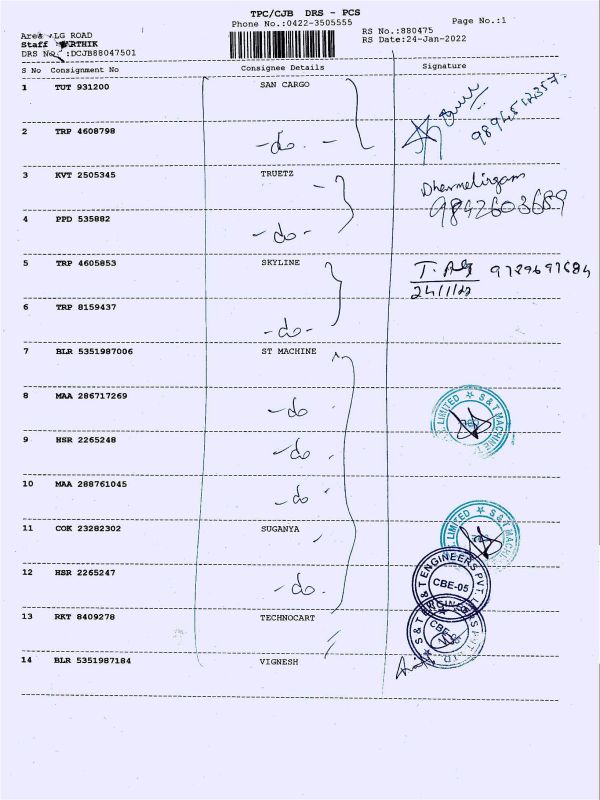 TPC/CJB DRS - PCS
Phone No.:0422-3505555
Page No.:1
RS No.:880475
RS Date:24-Jan-2022
Area LG ROAD
Staff
DRS No :DCJB88047501
S No Consignment No Consignee Details Signature
1 TUT 931200 SAN CARGO
2 TRP 4608798 -do. -
3 KVT 2505345 TRUETZ
Dharmalingam
9842603689
4 PPD 535882 -do-
5 TRP 4605853 SKYLINE
24/1/22
6 TRP 8159437 -do-
7 BLR 5351987006 ST MACHINE
8 MAA 286717269 -do
LIMITED ★ S & T MACHINE
9 HSR 2265248 -do.
10 MAA 288761045 -do
11 COK 23282302 SUGANYA
LIMITED ★ S & T MACHI
12 HSR 2265247 -do.
S & T ENGINEERS PVT. L
CBE-05
13 RKT 8409278 TECHNOCART
14 BLR 5351987184 VIGNESH